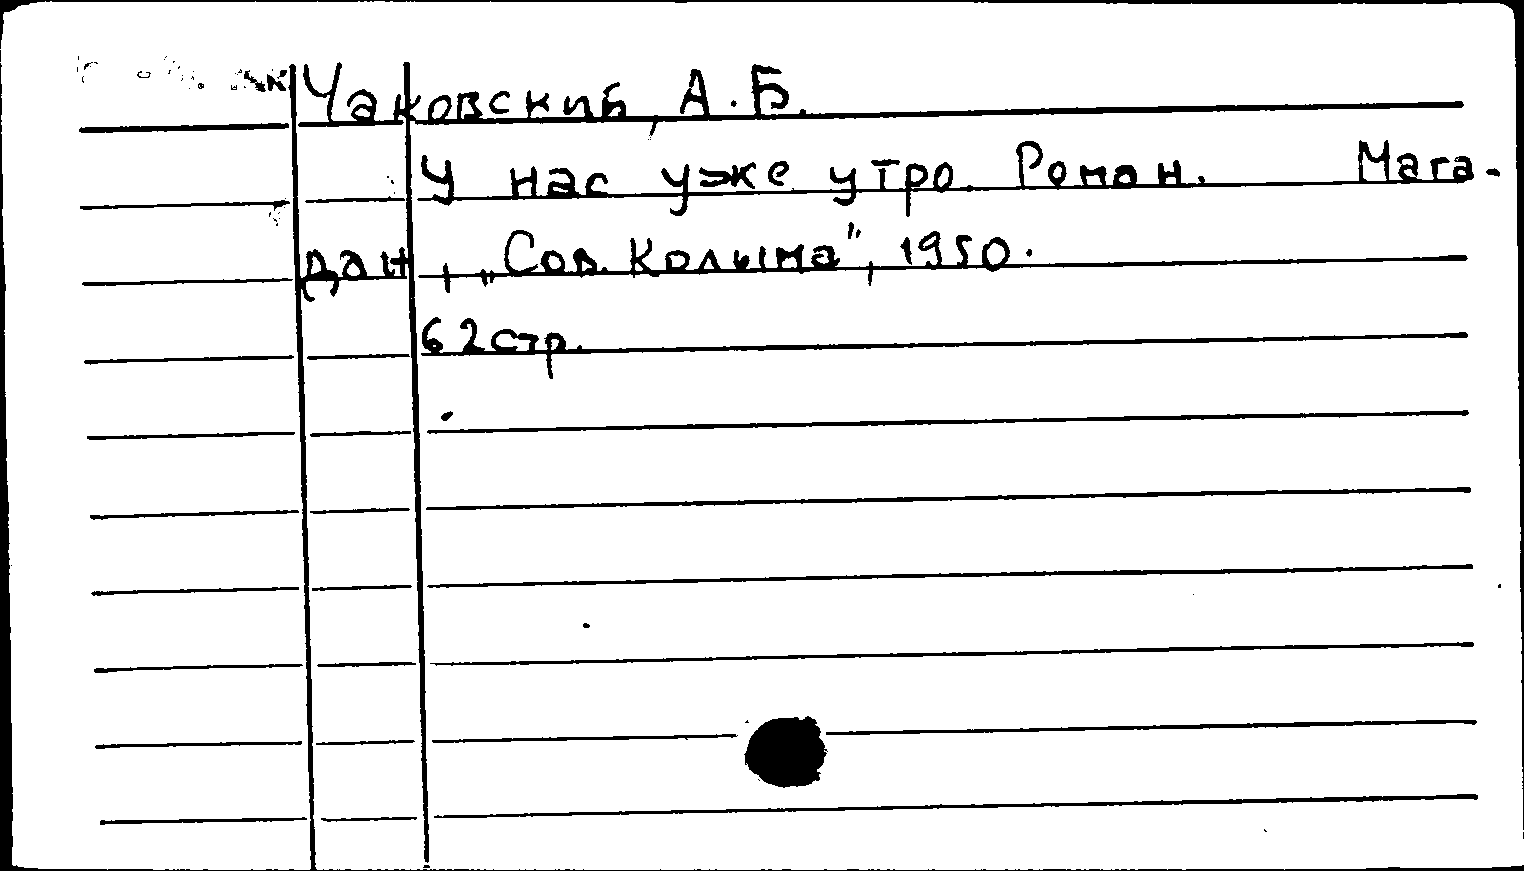 Чаковский, А.Б.
У нас уже утро. Роман. Мага-
дан, „Сов. Колыма", 1950.
62 стр.